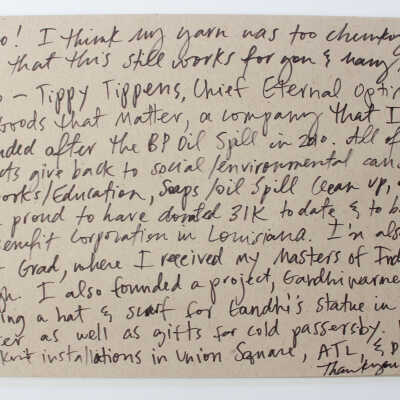 o! I think my yarn was too chunky
that this still works for you & many
o - Tippy Tippens, Chief Eternal Opti
Goods that Matter, a company that I
nded after the BP Oil Spill in 2010. All of
cts give back to social/environmental cau
orks/Education, Soaps/Oil Spill Clean up,
proud to have donated 31K to date & to b
enefit Corporation in Louisiana. I'm als
Grad, where I received my Masters of Ind
gn. I also founded a project, Gandhiwarme
ing a hat & scarf for Gandhi's statue in
er as well as gifts for cold passersby.
knit installations in Union Square, ATL, & D
Thankyou